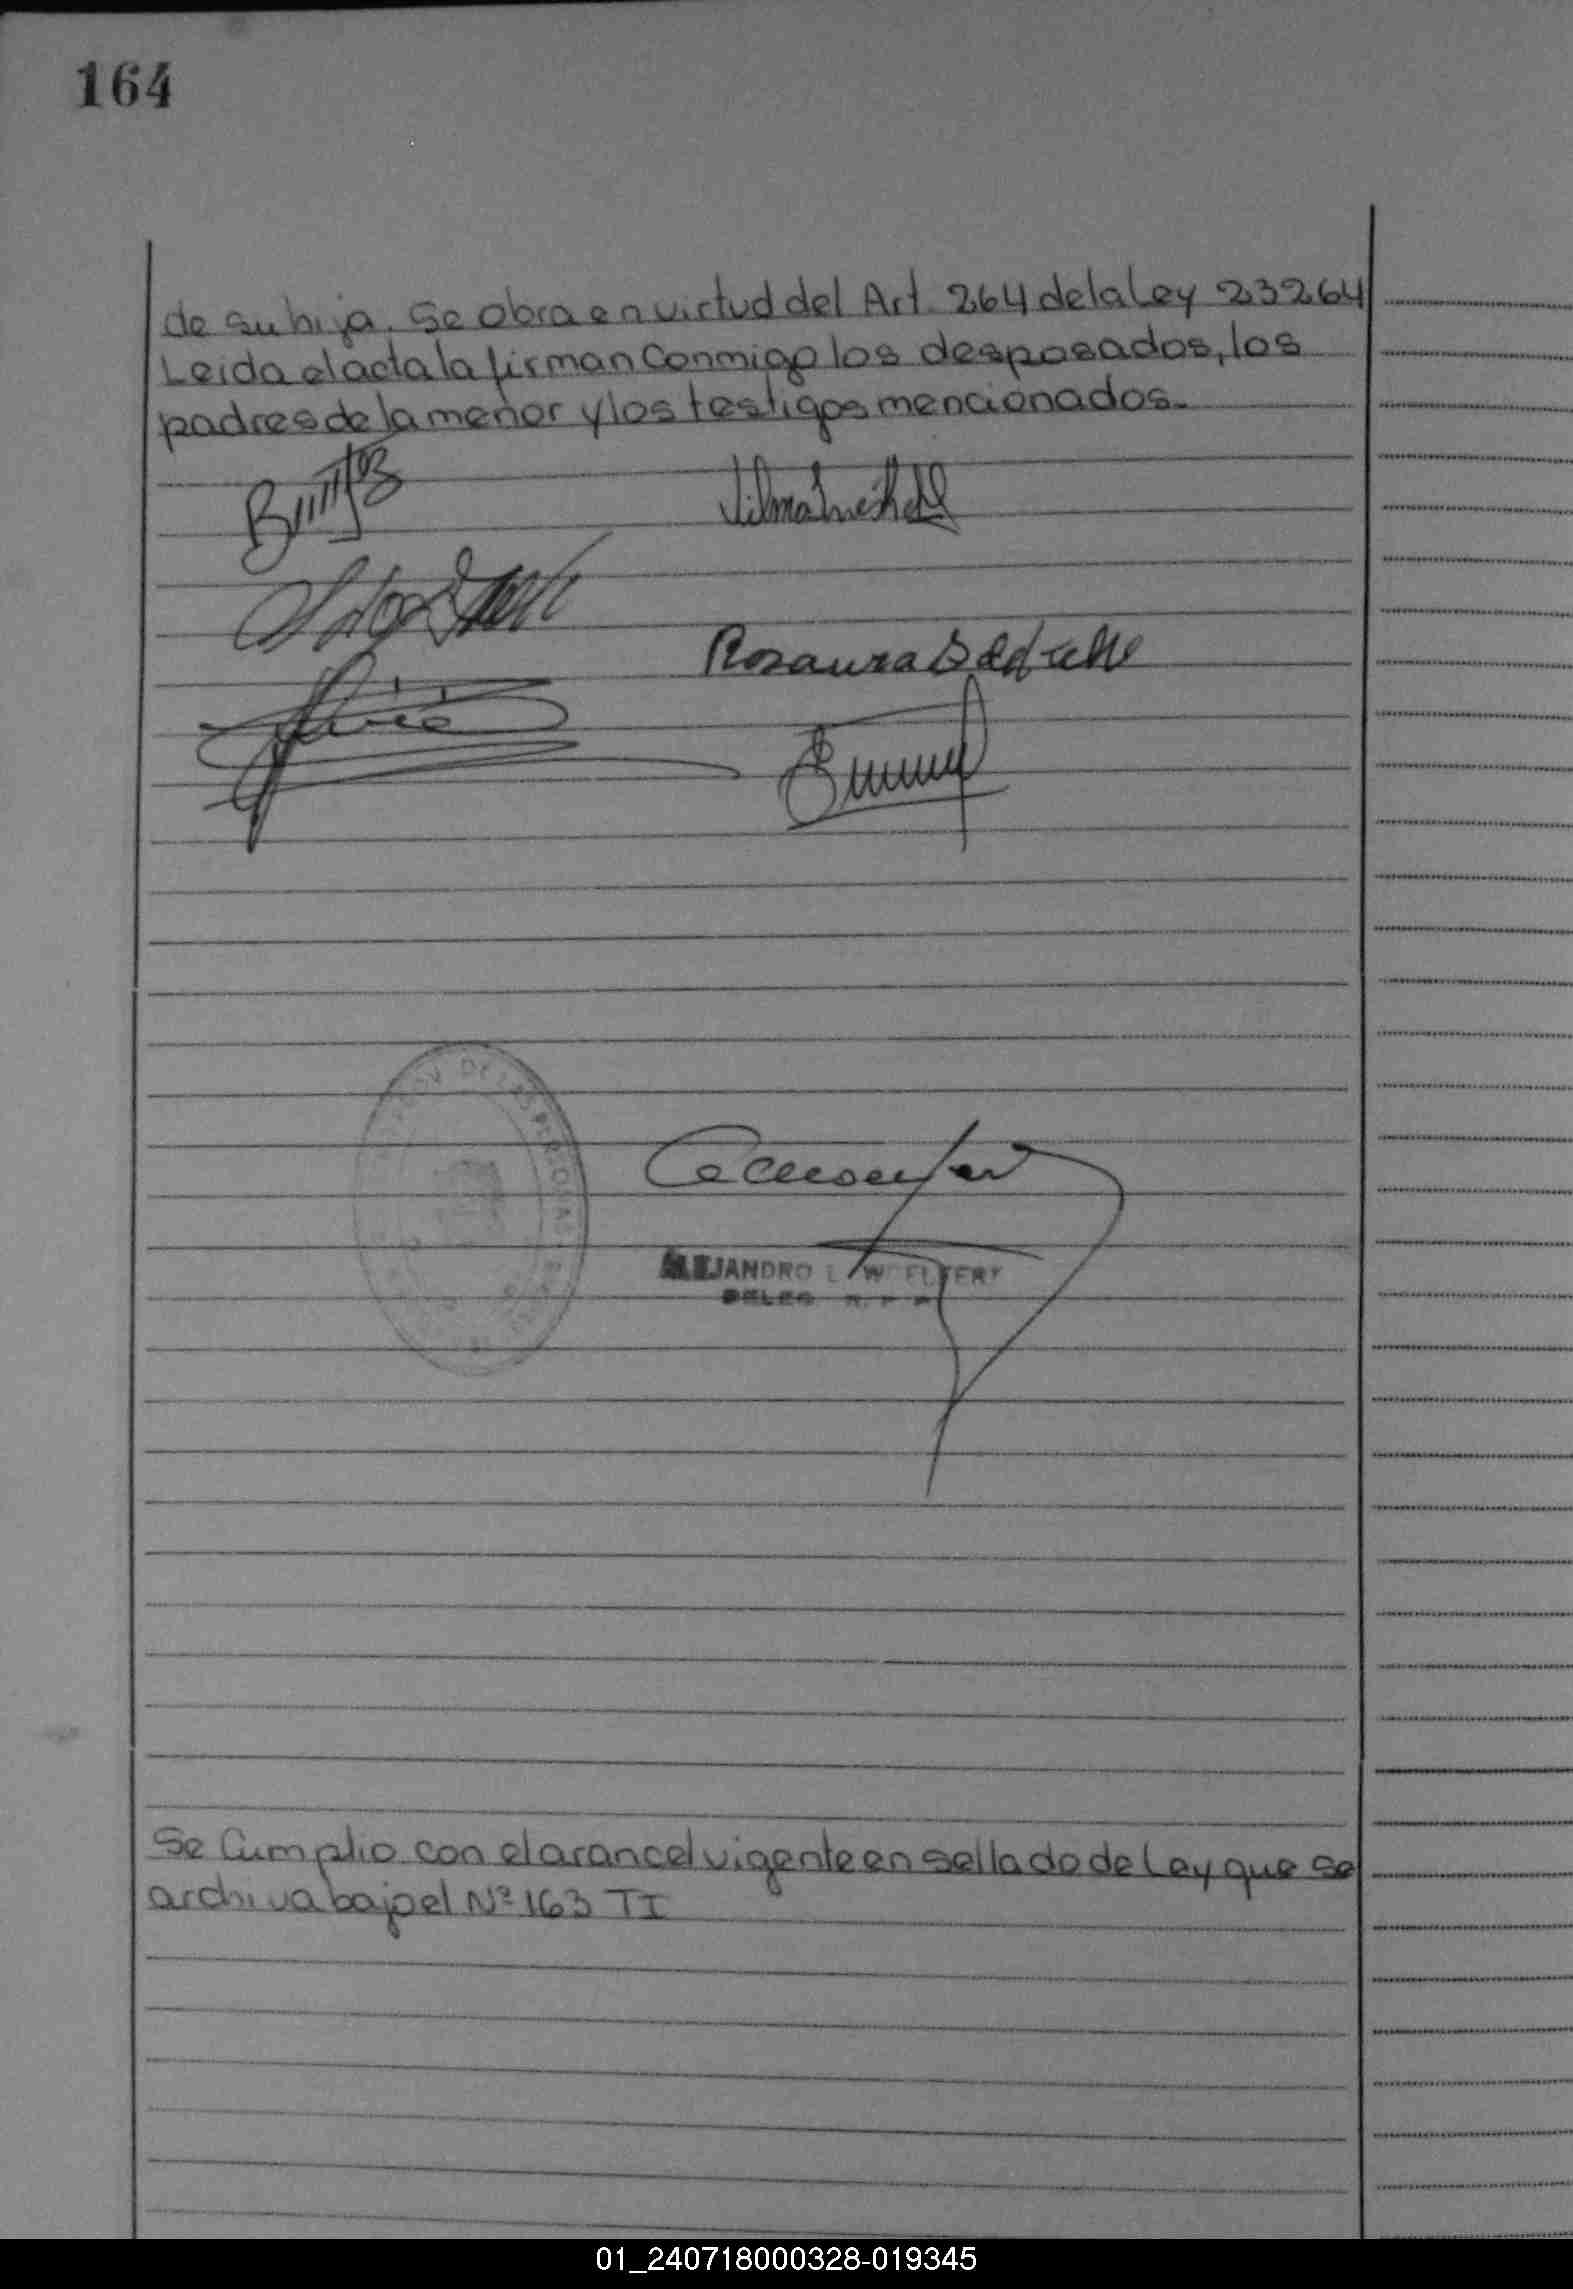 164
de su hija. Se obra en virtud del Art. 264 de la Ley 23264
Leida el acta la firman conmigo los desposados, los
padres de la menor y los testigos mencionados.-
Rosaura
DE LAS PERSONAS
ALEJANDRO L.
DELEG. R. P.
Se Cumplio con el arancel vigente en sellado de Ley que se
archiva bajo el Nº 163 TI
01_240718000328-019345